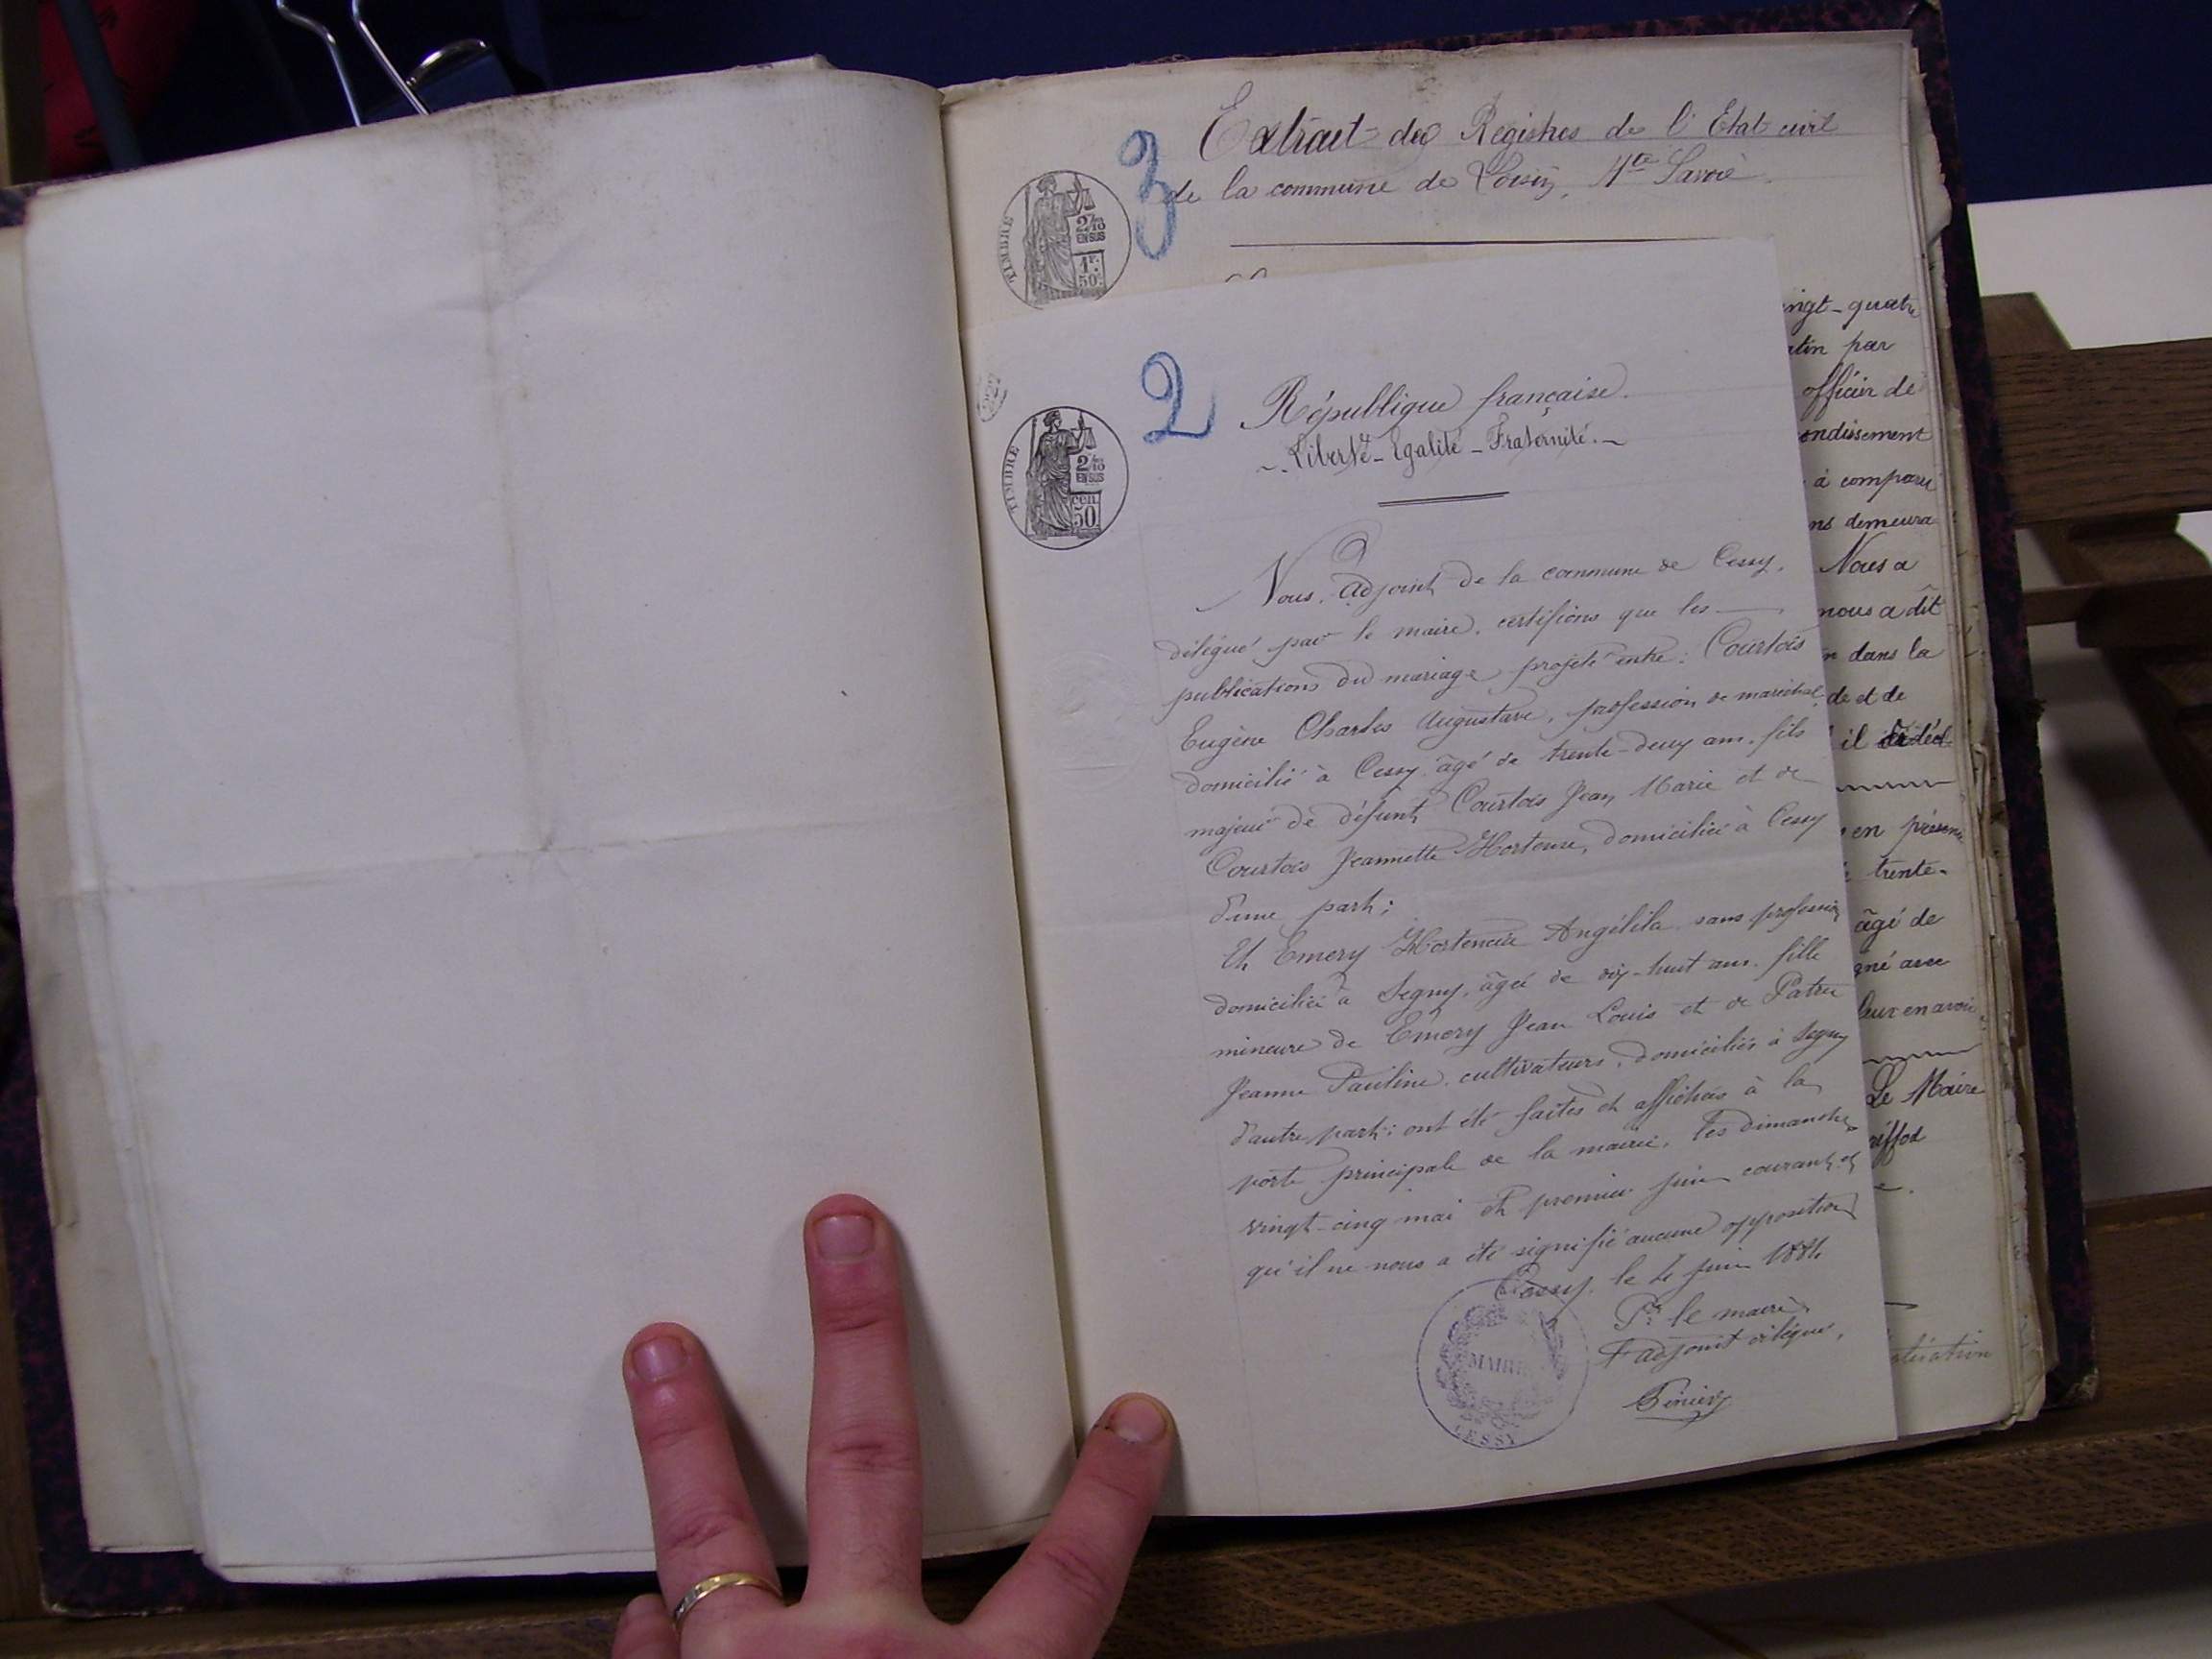 Extrait des Registres de l'Etat civil
de la commune de Loisin, Hte Savoie.
3
TIMBRE
2/10
EN SUS
1F.
50c.
2
République française.
Liberté - Egalité - Fraternité.
TIMBRE
2/10
EN SUS
CEN.
50
Nous, adjoint de la commune de Cessy,
délégué par le maire, certifions que les
publications du mariage projeté entre: Courtois
Eugène Charles Augustave, profession de maréchal,
domicilié à Cessy, âgé de trente-deux ans, fils
majeur de défunt Courtois Jean Marie et de
Courtois Jeannette Hortense, domiciliée à Cessy
d'une part;
Et Emery Hortencia Angélila sans profession
domiciliée à Segny, âgée de dix-huit ans, fille
mineure de Emery Jean Louis et de Patru
Jeanne Pauline, cultivateurs, domiciliés à Segny
d'autre part; ont été faites et affichées à la
porte principale de la mairie, les dimanches
vingt-cinq mai et premier juin courant et
qu'il ne nous a été signifié aucune opposition
Cessy, le 4 juin 1884
Pr. le maire
l'adjoint délégué,
MAIRIE
CESSY
ingt-quatre
atin par
officier de
ondissement
à comparu
ns demeura
Nous a
nous a dit
n dans la
de et de
il
en présence
trente-
âgé de
gné avec
leur en avoir
Le Maire